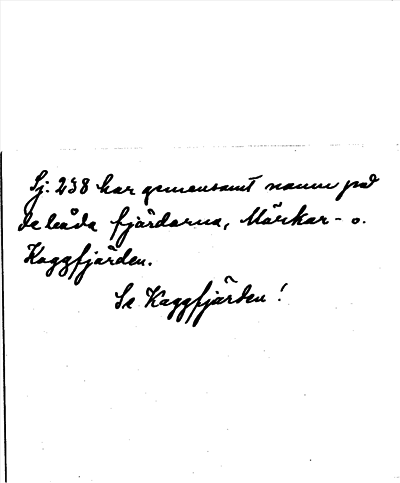 Sj. 258 har gemensamt namn på
de båda fjärdarna, Mörkar- o.
Kaggfjärden.
Se Kaggfjärden!